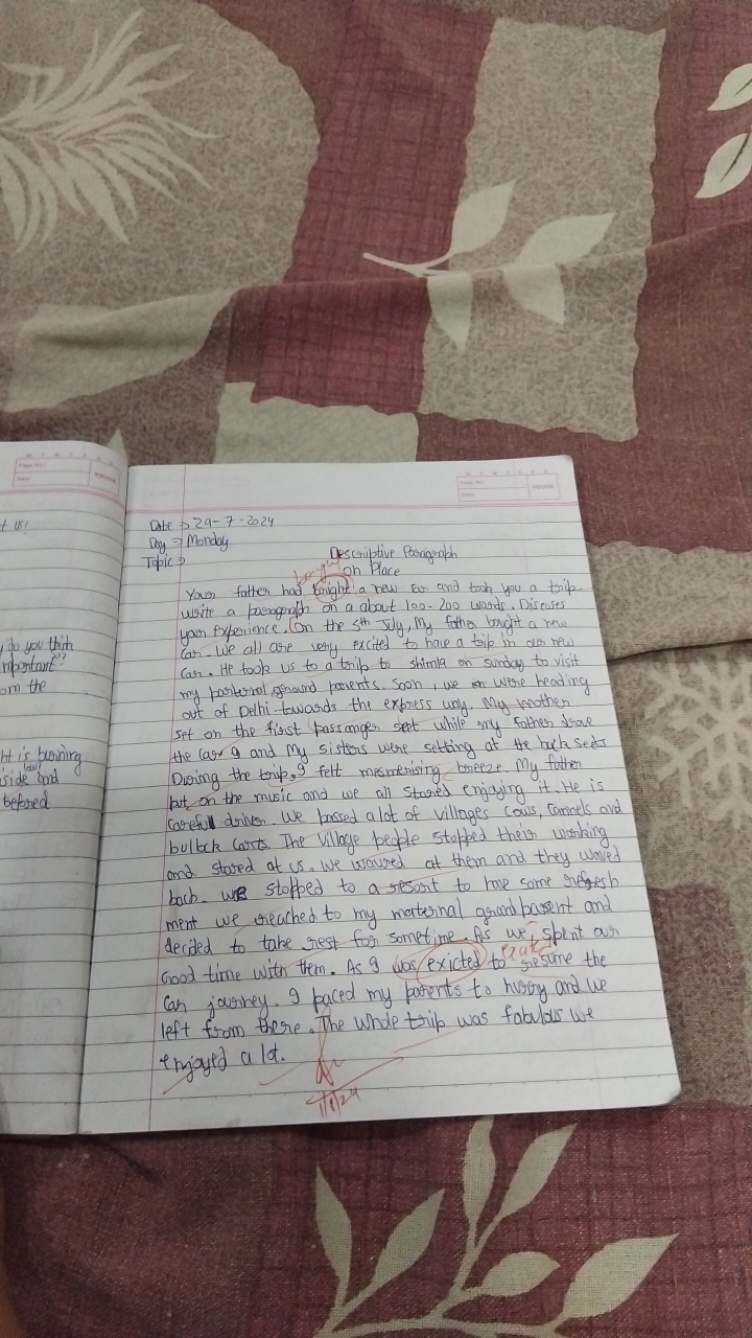 t us?
do you think
mportant?
om the
ht is burning
side and
before d
Date → 29-7-2024
Day → Monday
Topic → Descriptive Paragraph
on Place
bought
Your father had bright a new car and took you a trip
write a paragraph on a about 100-200 words. Discuses
your experience. On the 5th July, My father bought a new
car. We all are very excited to have a trip in our new
car. He took us to a trip to shimla on sunday to visit
my paternal ground parents. Soon, we were heading
out of Delhi towards the express way. My mother
set on the first passanger seat while my father drove
the car I and My sisters were setting at the back seds
During the trip, I felt mesmerising breeze. My father
put on the music and we all stared enjoying it. He is
carefull driver. We passed a lot of villages cows, cannels and
bullock carts. The village people stopped their working
and stared at us. We waved at them and they waved
back. We stopped to a resort to have some refresh
ment we reached to my maternal grand parent and
decided to take rest for sometime. As we spent our
Good time with them. As I was exicted to resume the
car journey. I paced my parents to hurry and we
left from there. The whole trip was fabulous we
enjoyed a lot.